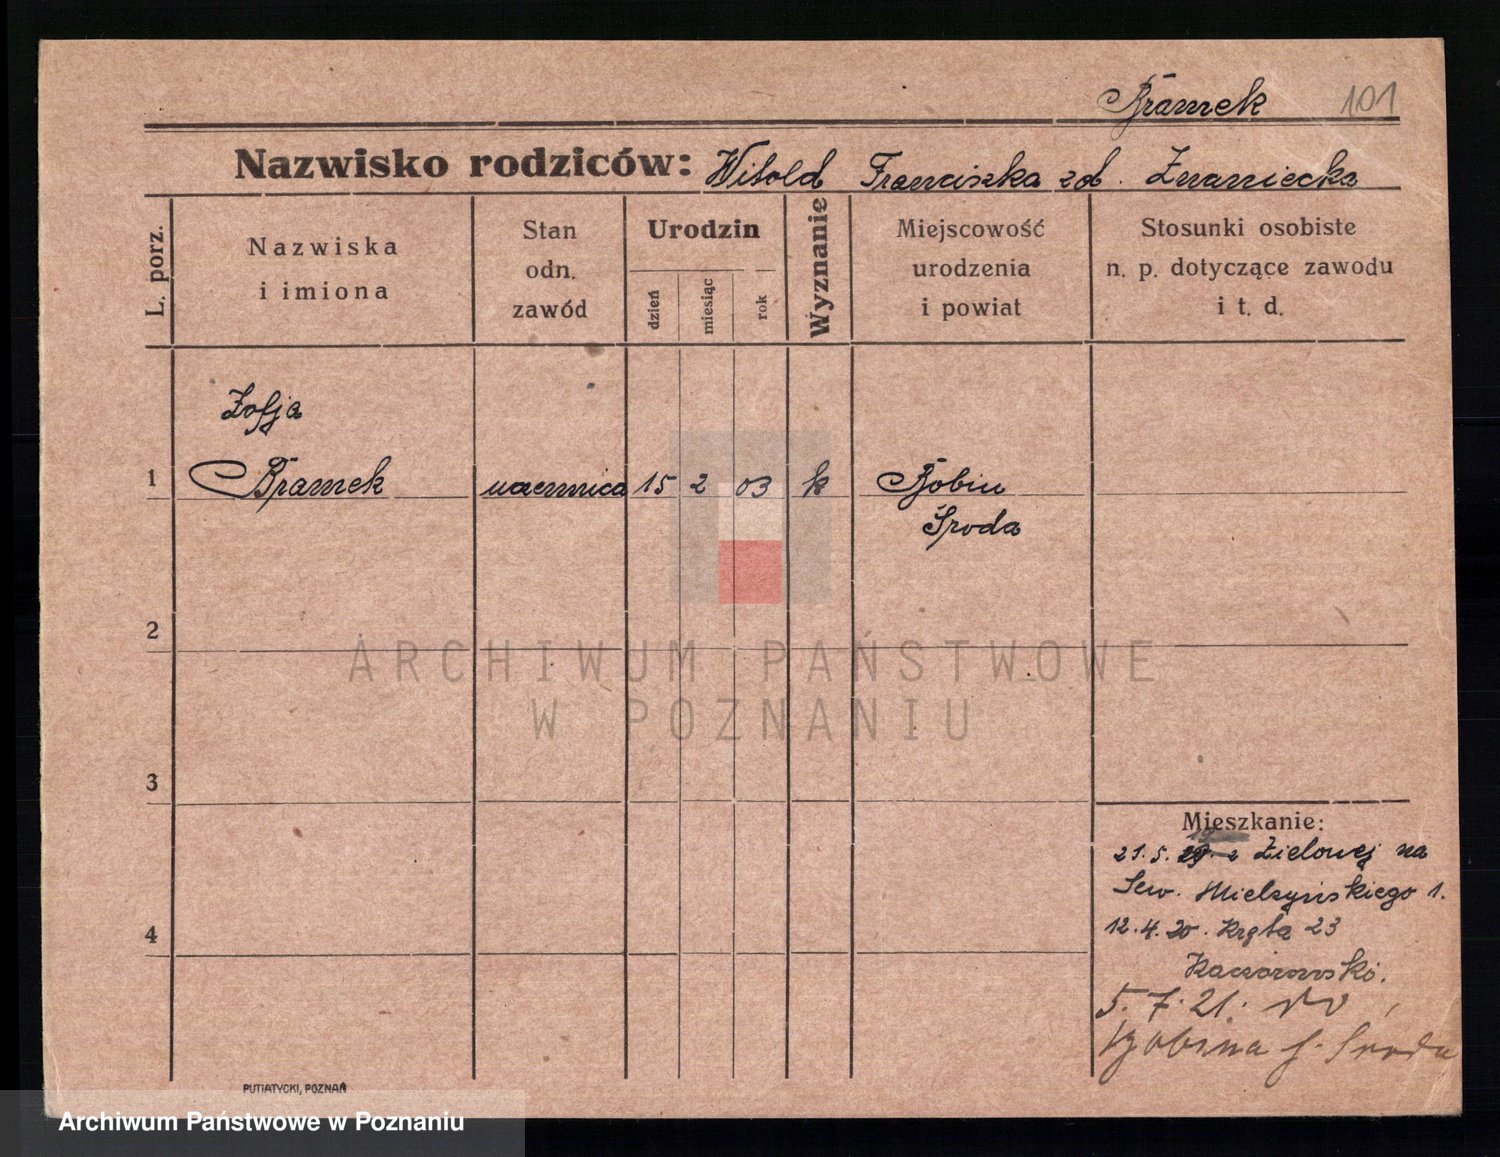 Bramek 101
Nazwisko rodziców: Witold Franciszka zd. Znaniecka
L. porz.
Nazwiska
i imiona
Stan
odn.
zawód
Urodzin
dzień
miesiąc
rok
Wyznanie
Miejscowość
urodzenia
i powiat
Stosunki osobiste
n. p. dotyczące zawodu
i t. d.
Zofja
1 Bramek uczennica 15 2 03 k Bobin
Środa
2
ARCHIWUM PAŃSTWOWE
W POZNANIU
3
Mieszkanie:
19
21.5. z Zielonej na
Sew. Mielżyńskiego 1.
4
12.4.20. Kręta 23
Kaczorowski.
5.7.21. do
Środa
PUTIATYCKI, POZNAŃ
Archiwum Państwowe w Poznaniu